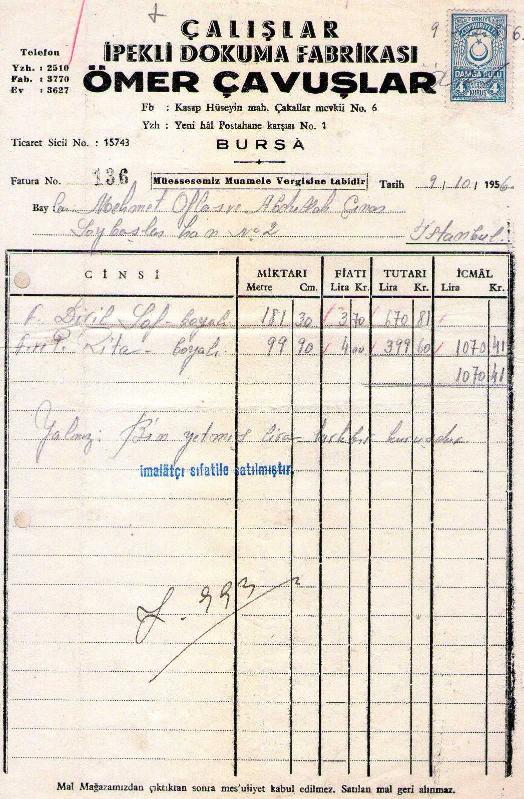 ÇALIŞLAR
İPEKLİ DOKUMA FABRİKASI
ÖMER ÇAVUŞLAR
Telefon
Yzh. : 2510
Fab. : 3770
Ev : 3627
Fb : Kasap Hüseyin mah. Çakallar mevkii No. 6
Yzh : Yeni hâl Postahane karşısı No. 1
Ticaret Sicil No. : 15743
BURSA
Fatura No. 136 Müessesemiz Muamele Vergisine tabidir Tarih 9/10/1956
Bay
han No 2 Istanbul
CİNSİ MİKTARI FİATI TUTARI İCMÂL
Metre Cm. Lira Kr. Lira Kr. Lira Kr.
boyalı 181 30 3 70 670 81
boyalı 99 90 4 00 399 60 1070 41
1070 41
Yalnız: Bin yetmiş lira kırkbir kuruşdur
imalâtçı sıfatile satılmıştır.
Mal Mağazamızdan çıktıktan sonra mes'uliyet kabul edilmez. Satılan mal geri alınmaz.